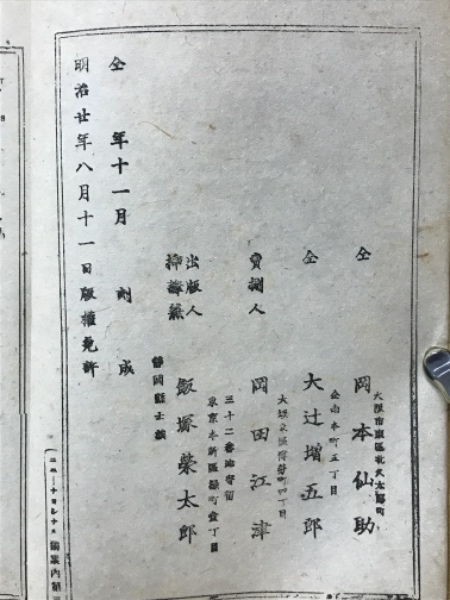 明治廿年八月十一日版權免許
仝 年十一月 刻成
静岡縣士族
兼
出版人 飯塚榮太郎
東京本所區緑町壹丁目
三十二番地寄留
賣捌人 岡田江津
大坂東區備後町四丁目
仝 大辻増五郎
仝南本町五丁目
仝 岡本仙助
大阪市東區北久太郎町
獨案内第